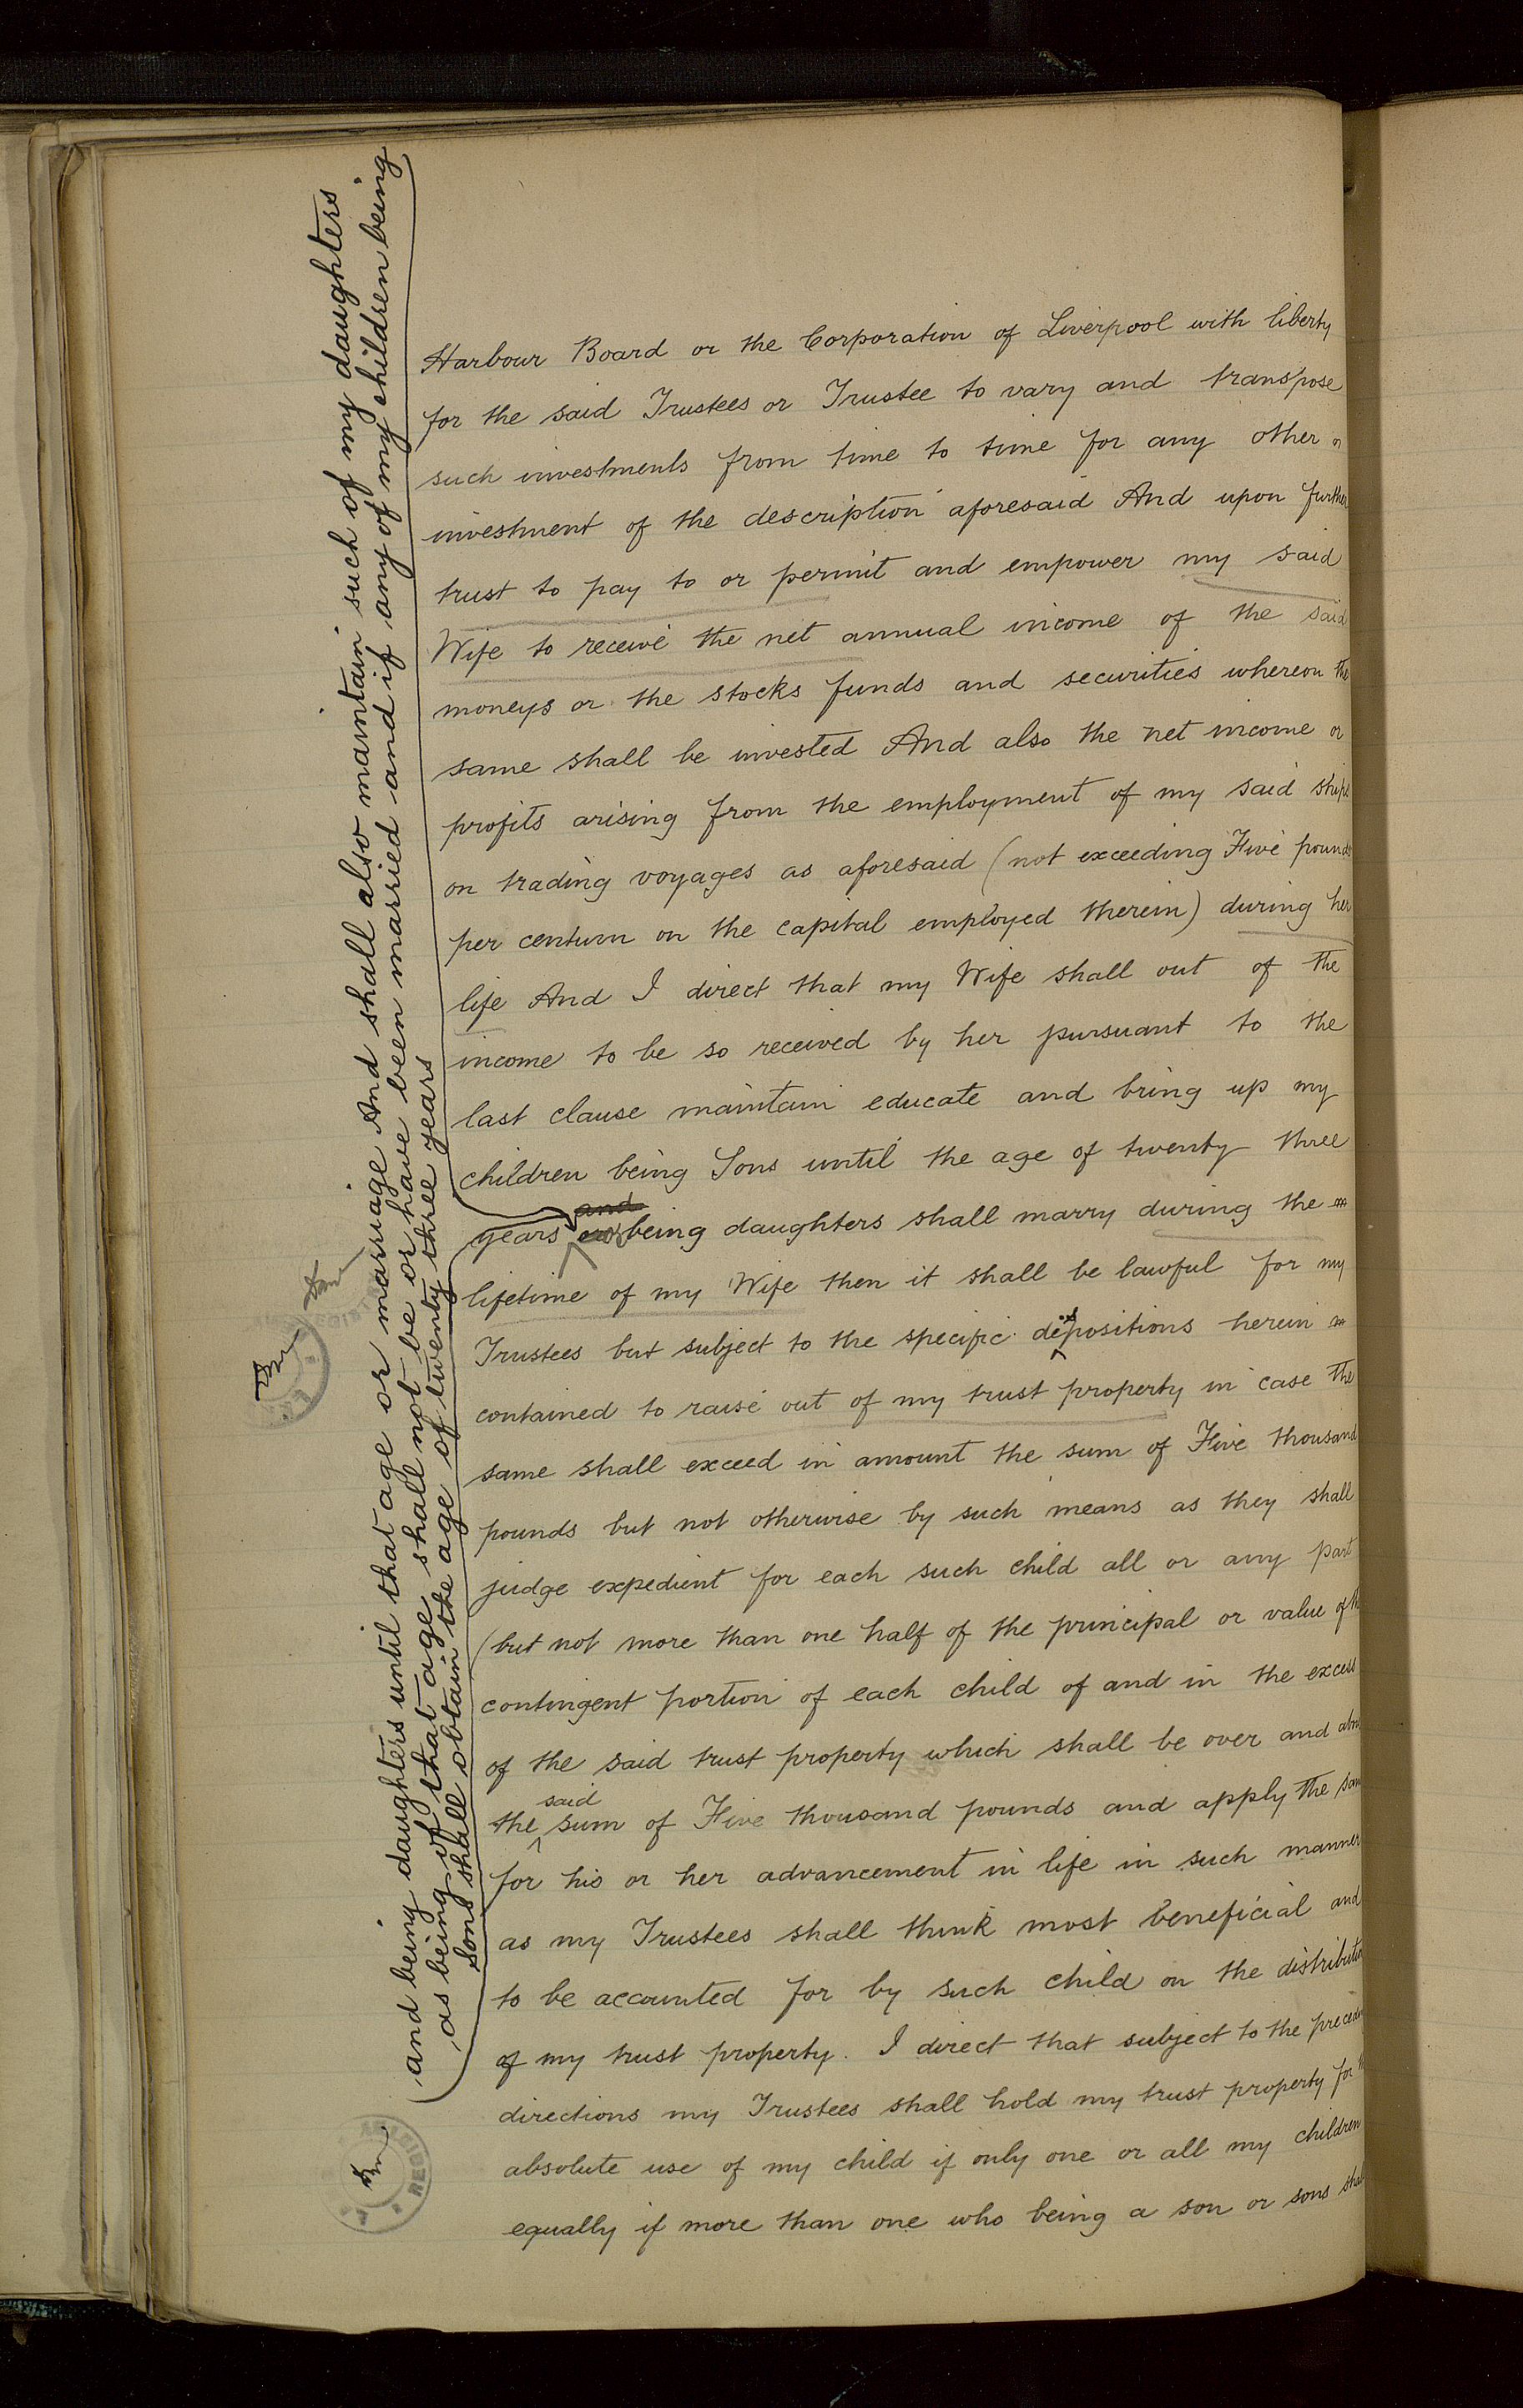 Harbour Board or the Corporation of Liverpool with liberty
for the said Trustees or Trustee to vary and transpose
such investments from time to time for any other or
investment of the description aforesaid And upon further
trust to pay to or permit and empower my said
Wife to receive the net annual income of the said
moneys or the stocks funds and securities whereon the
same shall be invested And also the net income or
profits arising from the employment of my said ships
on trading voyages as aforesaid (not exceeding Five pounds
per centum on the capital employed therein) during her
life And I direct that my Wife shall out of the
income to be so received by her pursuant to the
last clause maintain educate and bring up my
children being Sons until the age of twenty three
and
years being daughters shall marry during the
lifetime of my Wife then it shall be lawful for my
Trustees but subject to the specific dispositions herein
contained to raise out of my trust property in case the
same shall exceed in amount the sum of Five thousand
pounds but not otherwise by such means as they shall
judge expedient for each such child all or any part
(but not more than one half of the principal or value of the
contingent portion of each child of and in the excess
of the said trust property which shall be over and above
said
the sum of Five thousand pounds and apply the same
for his or her advancement in life in such manner
as my Trustees shall think most beneficial and
to be accounted for by such child on the distribution
of my trust property. I direct that subject to the preceding
directions my Trustees shall hold my trust property for the
absolute use of my child if only one or all my children
equally if more than one who being a son or sons shall
and being daughters until that age or marriage And shall also maintain such of my daughters
as being of that age shall not be or have been married and if any of my children being
Sons shall obtain the age of twenty three years